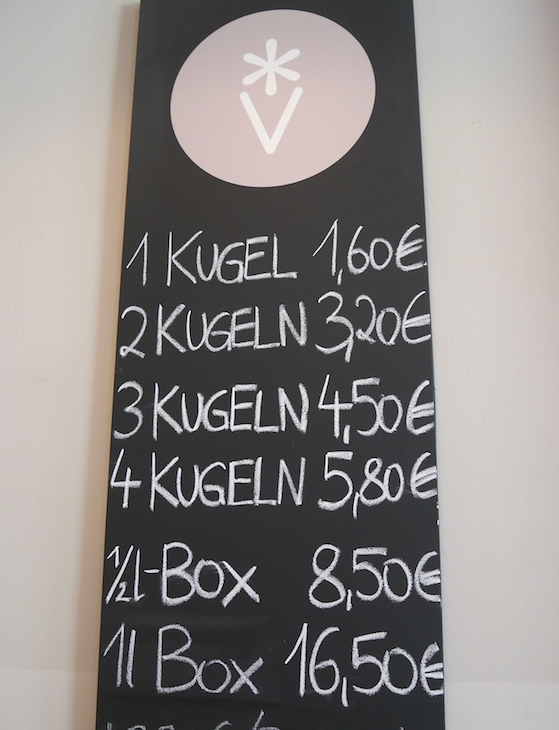 1 KUGEL 1,60€
2 KUGELN 3,20€
3 KUGELN 4,50€
4 KUGELN 5,80€
1/2l-BOX 8,50€
1l BOX 16,50€